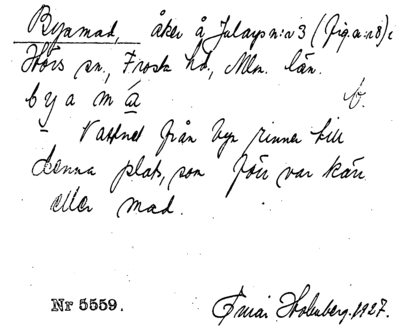 Byamad, åker å Julays n:r 3 (fig. a. n 8) i
Hörs sn, Frosta hd, Mlm. län.
b y a m a b.
Vattnet från byn rinner till
denna plats, som förr var kärr
eller mad.
Nr 5559. Ingvar Holmberg. 1927.